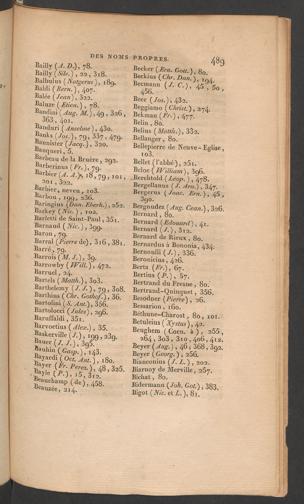 DES NOMS PROPRES.
489
Bailly (A. D.), 78.
Bailly (Silv.), 22, 318.
Balbulus (Notgerus), 189.
Baldi (Bern.), 407.
Balée (Jean), 322.
Baluze (Etien.), 78.
Bandini (Aug. M.), 49, 326,
363, 401.
Banduri (Anselme), 430.
Banks (Jos.), 79, 337, 479.
Bannister (Jacq.), 320.
Bauqueri, 5.
Barbeau de la Bruère, 292.
Barberinus (Fr.), 79.
Barbier (A. A.), 18, 79, 101,
201, 322.
Barbier, neveu, 103.
Barbou, 199, 236.
Baringius (Dan. Eberh.), 252.
Barkey (Nic.), 102.
Barletti de Saint-Paul, 351.
Barnaud (Nic.), 399.
Baron, 79.
Barral (Pierre de), 316, 381.
Barré, 79.
Barrois (M. J.), 39.
Barrowby (Will.), 472.
Barruel, 24.
Bartels (Matth.), 303.
Barthelemy (J. J.), 79, 308.
Barthius (Chr. Gothof.), 36.
Bartolini (S. Ant.), 356.
Bartolocci (Jules), 296.
Baruffaldi, 351.
Barvoetius (Alex.), 35.
Baskerville (J.), 199, 239.
Bauer (J. J.), 395.
Bauhin (Gasp.), 143.
Bayardi (Oct. Ant.), 180.
Bayer (Fr. Perez), 298, 325.
Bayle (P.), 15, 312.
Beauchamp (de), 458.
Beauzée, 214.
Becker (Era. Gott.), 80.
Beckius (Chr. Dan.), 194.
Becmann (J. C.), 45, 50,
456.
Beer (Jos.), 432.
Beggiamo (Christ.), 274.
Bekman (Fr.), 477.
Belin, 80.
Belius (Matth.), 332.
Bellanger, 80.
Bellepierre de Neuve-Eglise,
103.
Bellet (l'abbé), 251.
Beloe (William), 396.
Berchtold (Léop.), 478.
Bergellanus (J. Arn.), 347.
Bergerus (Joac. Ern.), 45,
390.
Bergnudez (Aug. Cean.), 326.
Bernard, 80.
Bernard (Edouard), 41.
Bernard (J.), 312.
Bernard de Rieux, 80.
Bernardus à Bononia, 434.
Bernouilli (J.), 336.
Beroeicius, 426.
Bertu (Fr.), 67.
Bertius (P.), 57.
Bertrand du Fresne, 80.
Bertrand-Quinquet, 356.
Besodner (Pierre), 26.
Bessarion, 160.
Béthune-Charost, 80, 101.
Betuleius (Xystus), 42.
Beughem (Corn. à), 255,
264, 303, 310, 406, 412.
Beyer (Aug.), 46, 368, 392.
Beyer (Georg.), 256.
Bianconius (J. L.), 202.
Biarnoy de Merville, 257.
Bichat, 80.
Bidermann (Joh. Got.), 383.
Bigot (Nic. et L.), 81.